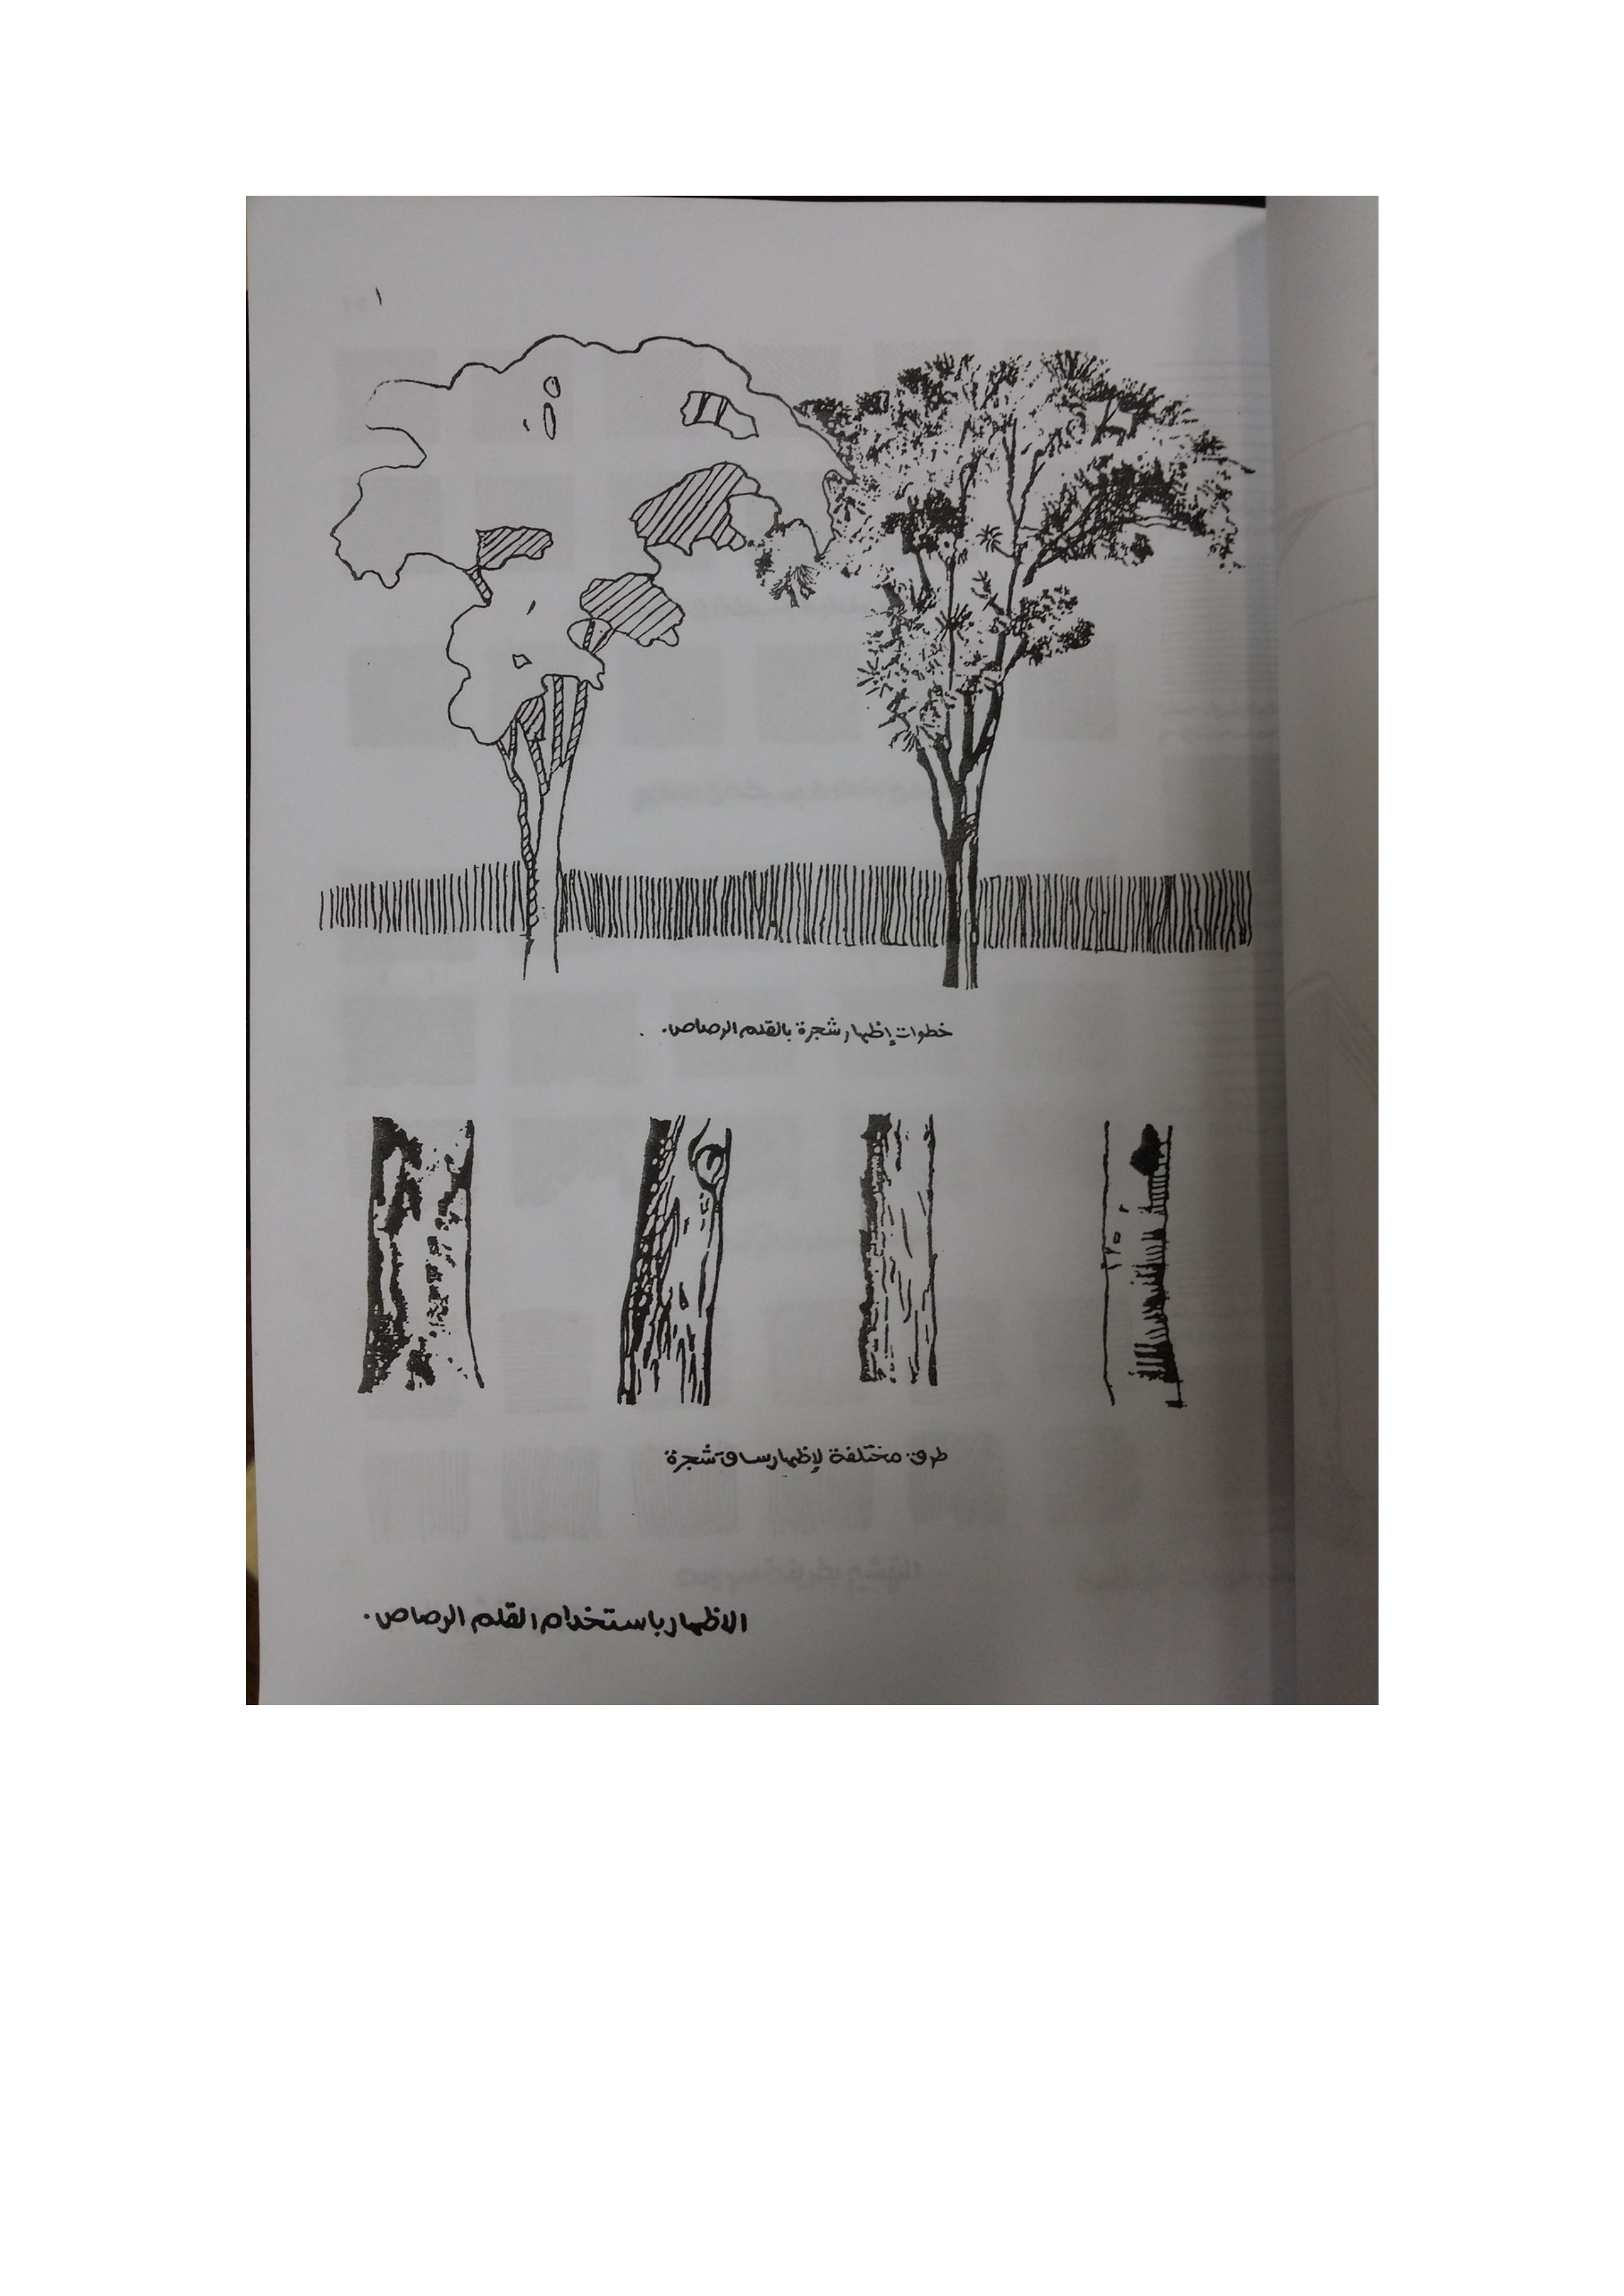 ١
خطوات إظهار شجرة بالقلم الرصاص.
طرق مختلفة لإظهار ساق شجرة
الاظهار باستخدام القلم الرصاص.